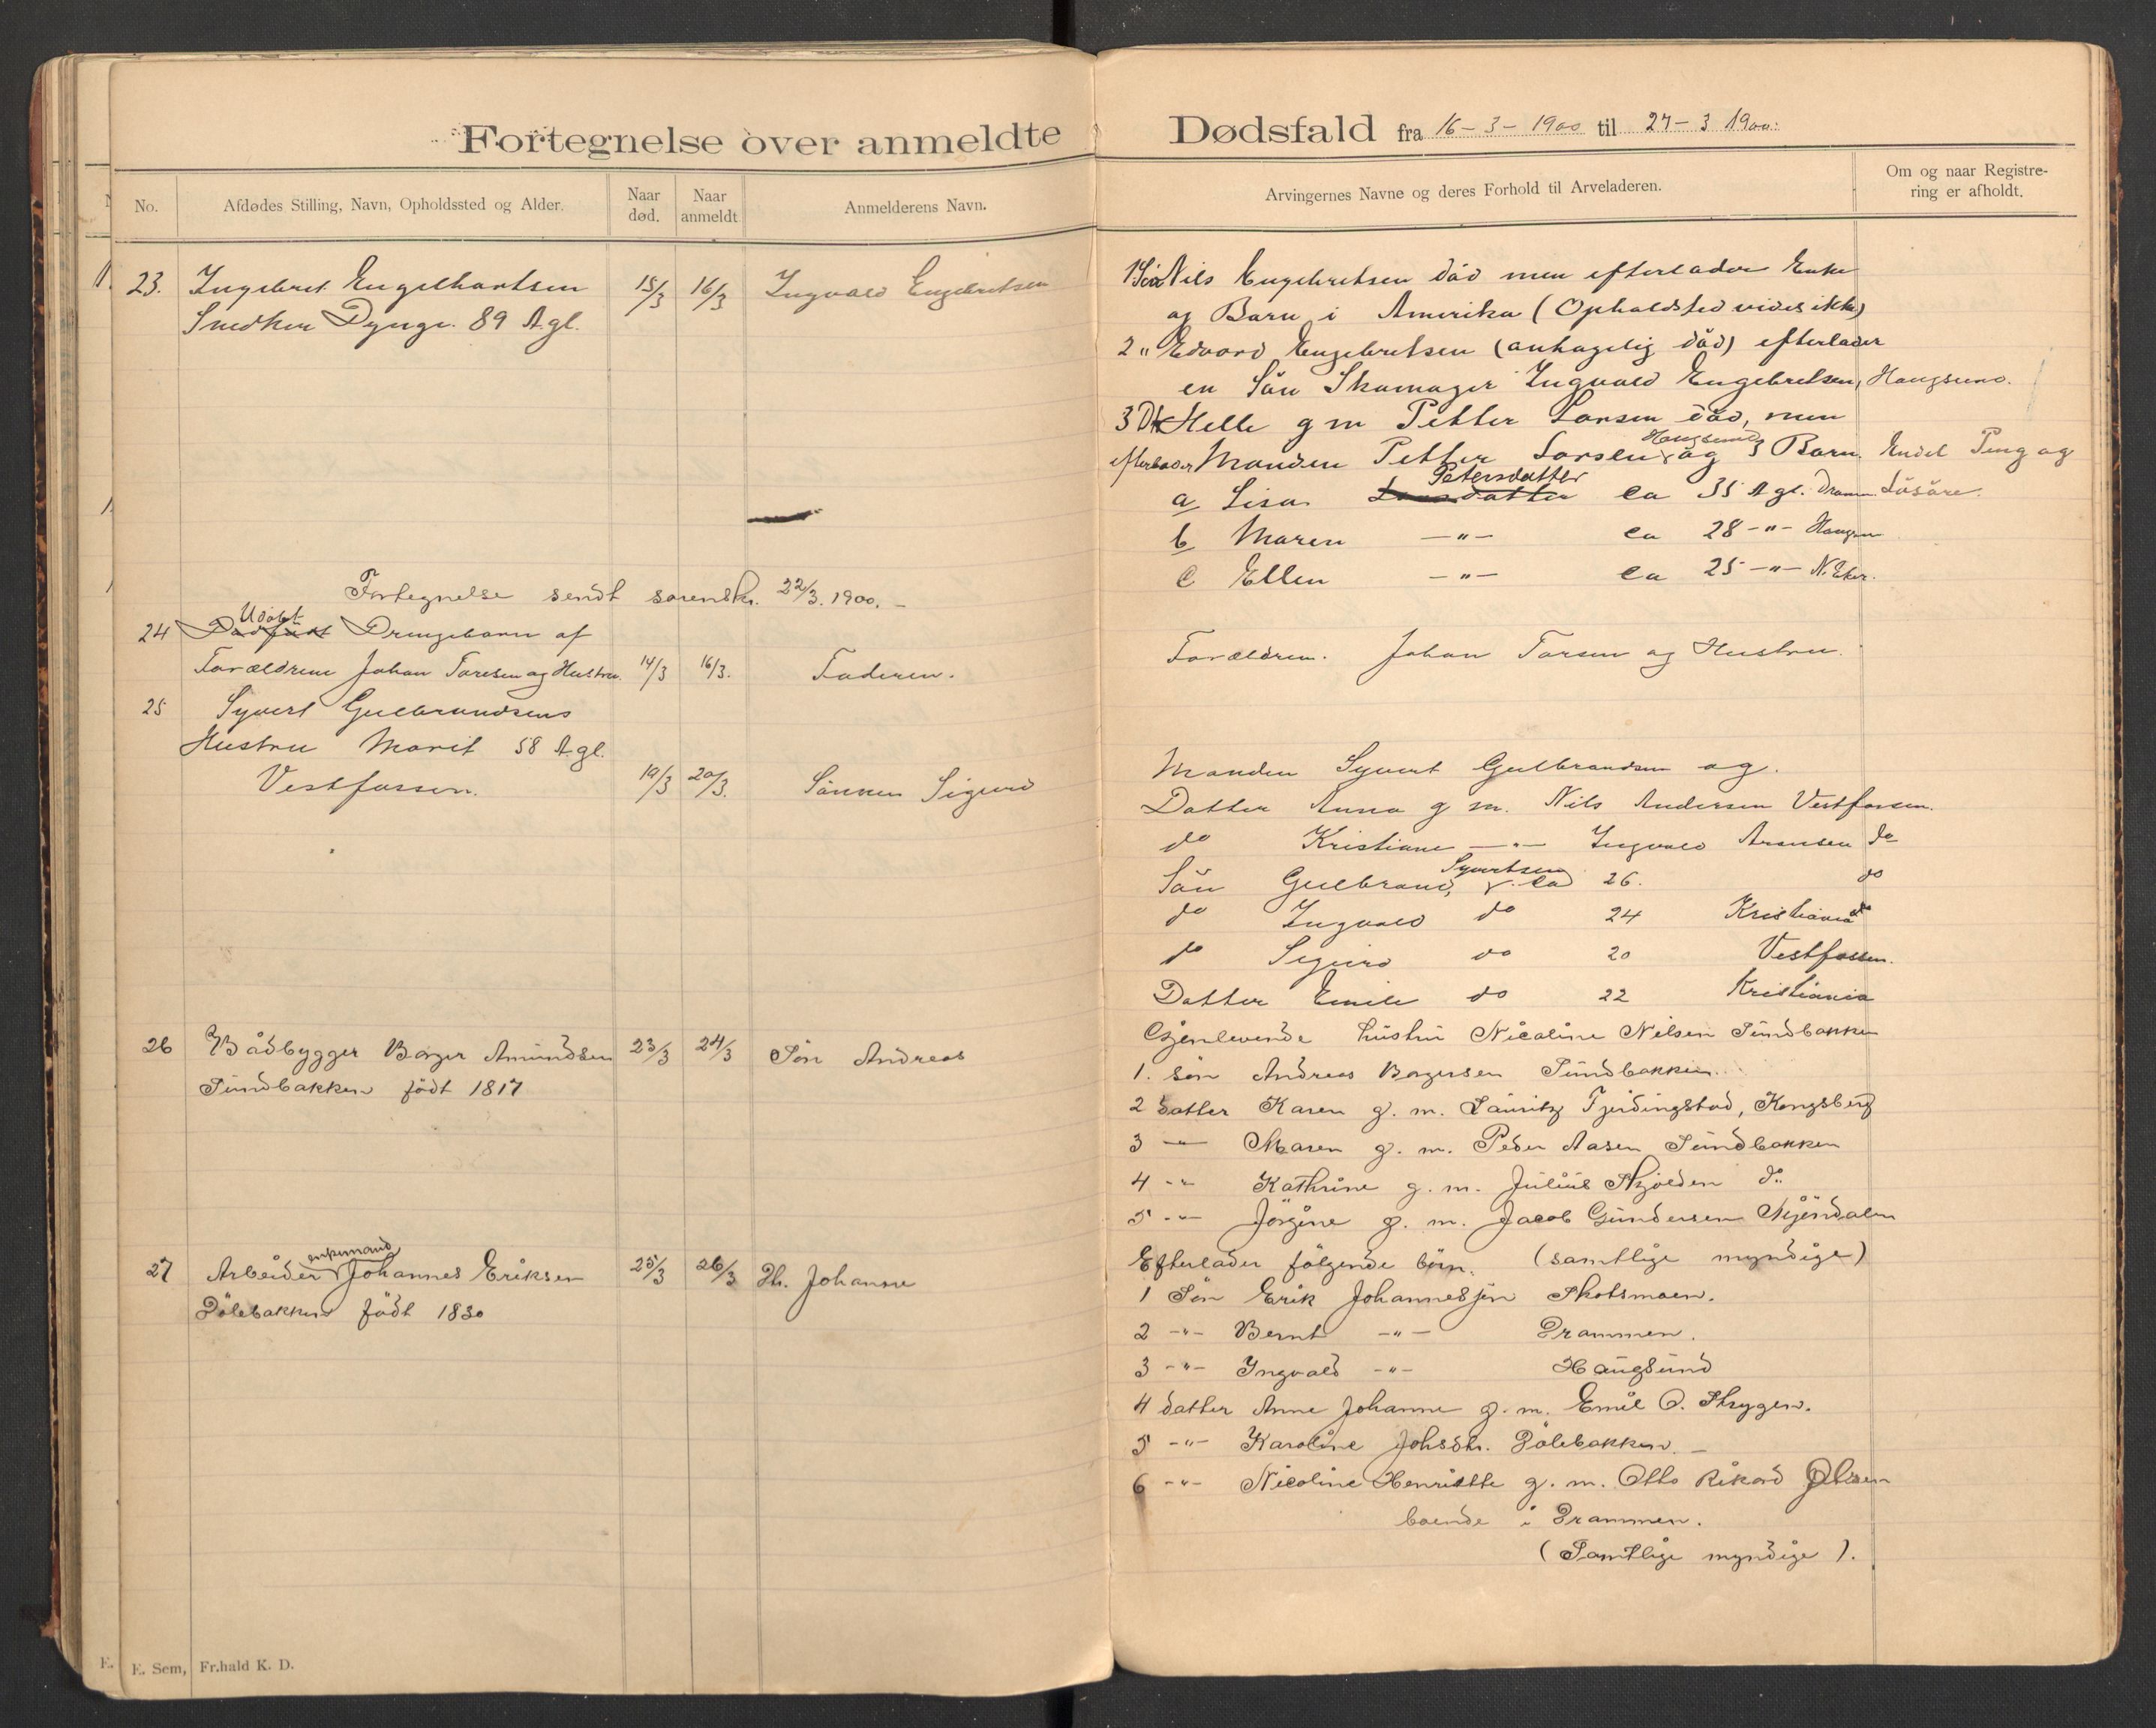 Fortegnelse over anmeldte Dødsfald fra 16-3-1900 til 27-3 1900.
No. Afdødes Stilling, Navn, Opholdssted og Alder. Naar død. Naar anmeldt Anmelderens Navn.
Arvingernes Navne og deres Forhold til Arveladeren. Om og naar Registrering er afholdt.
23. Ingebret Engelbartsen 15/3 16/3 Ingvald Engebretsen
Snedker Dynge. 89 A. gl.
Fortegnelse sendt sorenskr. 22/3. 1900. –
24 Udøbt Drengebarn af
Forældrene Johan Toresen og Hustru. 14/3 16/3. Faderen.
25 Syvert Gulbrandsens
Hustru Marit 58 A. gl.
Vestfossen. 19/3 20/3. Sönnen Sigurd
26 Bådbygger Borger Amundsen 23/3 24/3 Sön Andreas
Sundbakken födt 1817
27 Arbeider enkemand Johannes Eriksen 25/3 26/3 Dt. Johanne
Dölebakken födt 1830
E. Sem, Fr.hald K. D.
1. Sön Nils Engebretsen död men efterlader Enke
og Barn i Amerika (Opholdsted vides ikke)
2 " Edvard Engebretsen (antagelig död) efterlader
en Sön Skomager Ingvald Engebretsen, Hougsund.
3 Dtr Helle g m Petter Larsen död, men
efterlader Manden Petter Larsen Hougsund og 3 Barn. Endel Peng og
a Lisa Petersdatter ca 35 A gl. Dram. Lösöre.
b Maren –"– ca 28 –"– Hougsun
c Ellen –"– ca 25 –"– N. Eker.
Forældren. Johan Torsen og Hustru.
Manden Syvert Gulbrandsen og.
Datter Anna g m. Nils Andersen Vestfossen.
do Kristiane –"– Ingvald Aronsen do
Sön Gulbrand, Syvertsen ca 26. do
do Ingvald do 24 Kristiania
do Sigurd do 20 Vestfossen.
Datter Emile do 22 Kristiania
Gjenlevende hustru Nicoline Nilsen Sundbakken
1. sön Andreas Borgersen Sundbakken.
2 datter Karen g. m. Lauritz Fjerdingstad, Kongsberg
3 –"– Maren g. m. Peder Aasen Sundbakken
4 –"– Kathrine g. m. Julius Skjolden do.
5 –"– Jörgine g. m. Jacob Gundersen Mjöndalen
Efterlader fölgende börn. (samtlige myndige)
1 Sön Erik Johannessen Skotsmoen.
2 –"– Bernt –"– Drammen.
3 –"– Ingvald –"– Haugsund
4 datter Anne Johanne g. m. Emil O. Strygen.
5 –"– Karoline Johsdtr. Dölebakken. –
6 –"– Nicoline Henriette g. m. Otto Rikard Olsen
boende i Drammen.
(Samtlige myndige).